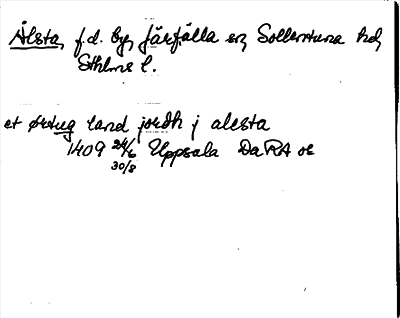 Ålsta, f.d. by, Järfälla sn, Sollentuna hd,
Sthlms l.
et ørtug land jordh j alesta
1409 24/6 Uppsala DaRA or
30/8